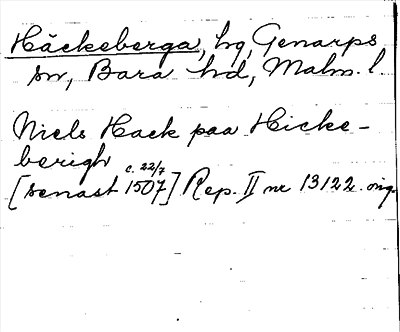 Häckeberga, hg, Genarps
sn, Bara hd, Malm. l.
Niels Hack paa Hicke-
berigh
c. 22/7
[senast 1507] Rep. II nr 13122. orig.